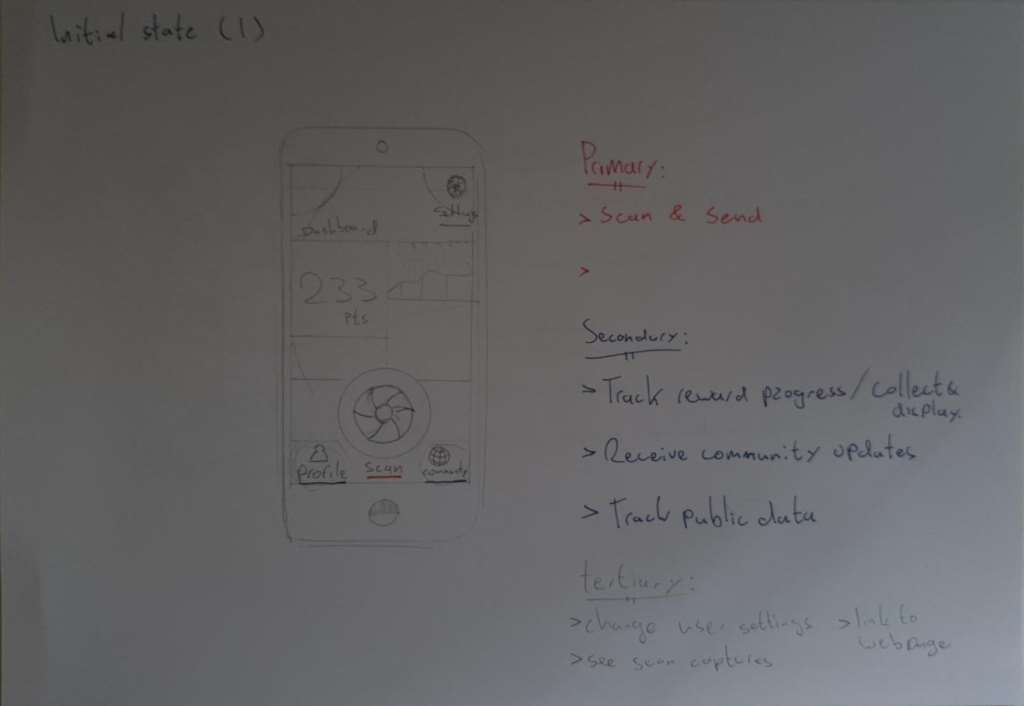 Initial state (1)
Dashboard
Settings
233
Pts
Profile
Scan
community
Primary:
> Scan & Send
>
Secondary:
> Track reward progress / collect &
display
> Receive community updates
> Track public data
tertiary:
> change user settings > link to
webpage
> see scan captures